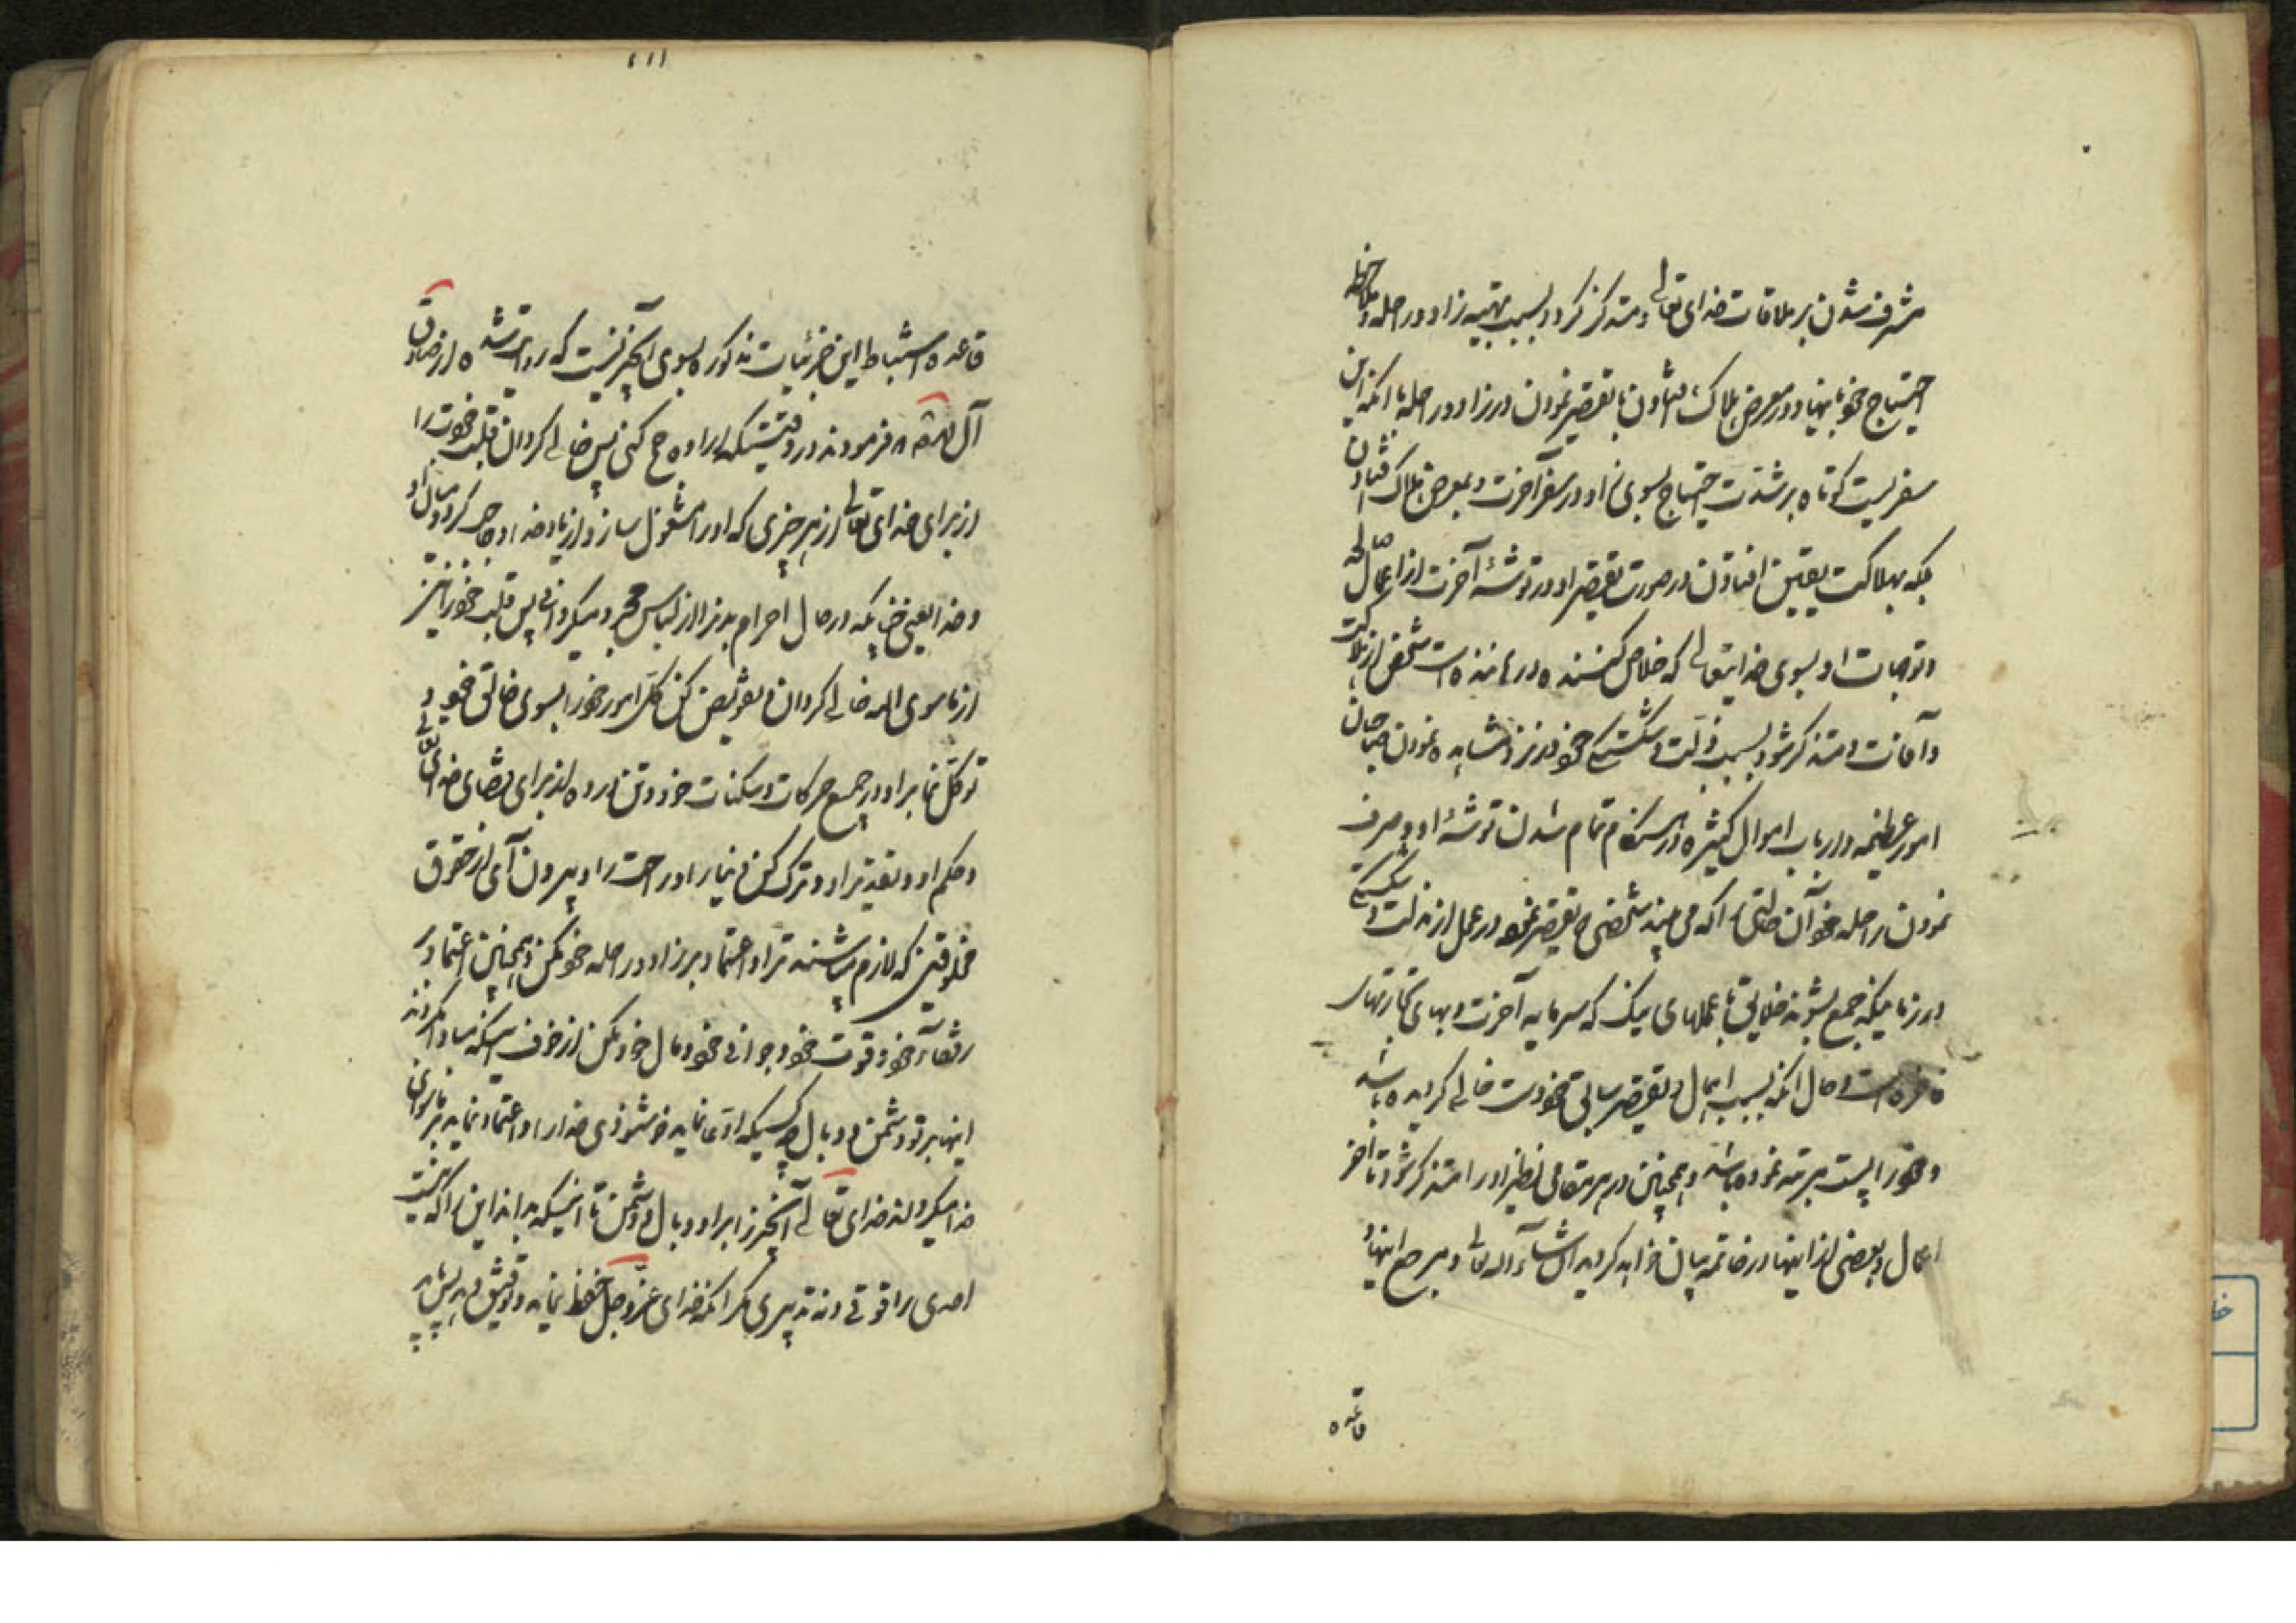 مشرف شدن بر ملاقات خدای تعالی و متذکر گردد بسبب تهیه زاد و راحله و ملاحظه
احتیاج خود بانها و در معرض هلاک افتادن با تقصیر نمودن در زاد و راحله با آنکه این
سفریست کوتاه بر شدت احتیاج بسوی زاد در سفر آخرت و بمعرض هلاک افتادن
بلکه بهلاکت یقین افتادن در صورت تقصیر او در توشهٔ آخرت از اعمال صالحه
و توجهات او بسوی خدایتعالی که خلاص کننده و رهاننده است شخص از هلاکت
و آفات و متذکر شود بسبب ذلت و شکستگی خود در نزد مشاهده نمودن صاحبان
امور عظیمه و ارباب اموال کثیره در هنگام تمام شدن توشهٔ او و صرف
نمودن راحله خود آن حالتی را که می بیند شخص تقصیر نموده در عمل از مذلت و شکستگی
در زمانیکه جمع بشوند خلایق با عملهای نیک که سرمایه آخرت و بهای تجارتهای
فاخره است و حال آنکه بسبب اهمال و تقصیر سابق خود دست خالی گردیده باشد
و خود را پست مرتبه نموده باشد و همچنین در هر مقامی نظیر او را متذکر شود تا آخر
اعمال و بعضی از اینها در خاتمه بیان خواهد گردید ان شاء الله تعالی و مرجع اینها و
قاعده
۱۱۱
قاعده استنباط این جزئیات مذکوره بسوی آن چیزیست که روایت شده از صادق
آل محمد فرمودند در وقتیکه اراده حج کنی پس خالی گردان قلب خودت را
از برای خدای تعالی از هر چیزی که او را مشغول سازد از یاد خدا و حاجز گردد میان او
و خدا یعنی چنانکه در حال احرام بدن را از لباس مجرد میگردانی پس قلب خود را نیز
از ما سوی الله خالی گردان و تفویض کن کل امور خود را بسوی خالق خود و
توکل نما بر او در جمیع حرکات و سکنات خود و تن در ده از برای قضای خدای تعالی
و حکم او و تقدیر او و ترک کن دنیا را و راحت را و بیرون آی از حقوق
مخلوقین که لازم میباشند ترا و اعتماد بر زاد و راحله خود مکن و همچنین اعتماد بر
رفقاء خود و قوت خود و جوانی خود و مال خود مکن از خوف اینکه مبادا گردند
اینها بر تو دشمن و وبال هر کسیکه ادعا نماید خوشنودی خدا را و اعتماد نماید بر ما سوای
خدا میگرداند خدای تعالی آن چیز را بر او وبال و دشمن تا اینکه بداند این را که نیست
احدی را قوتی و نه تدبیری مگر آنکه خدای عز و جل حفظ نماید و توفیق دهد پس باید